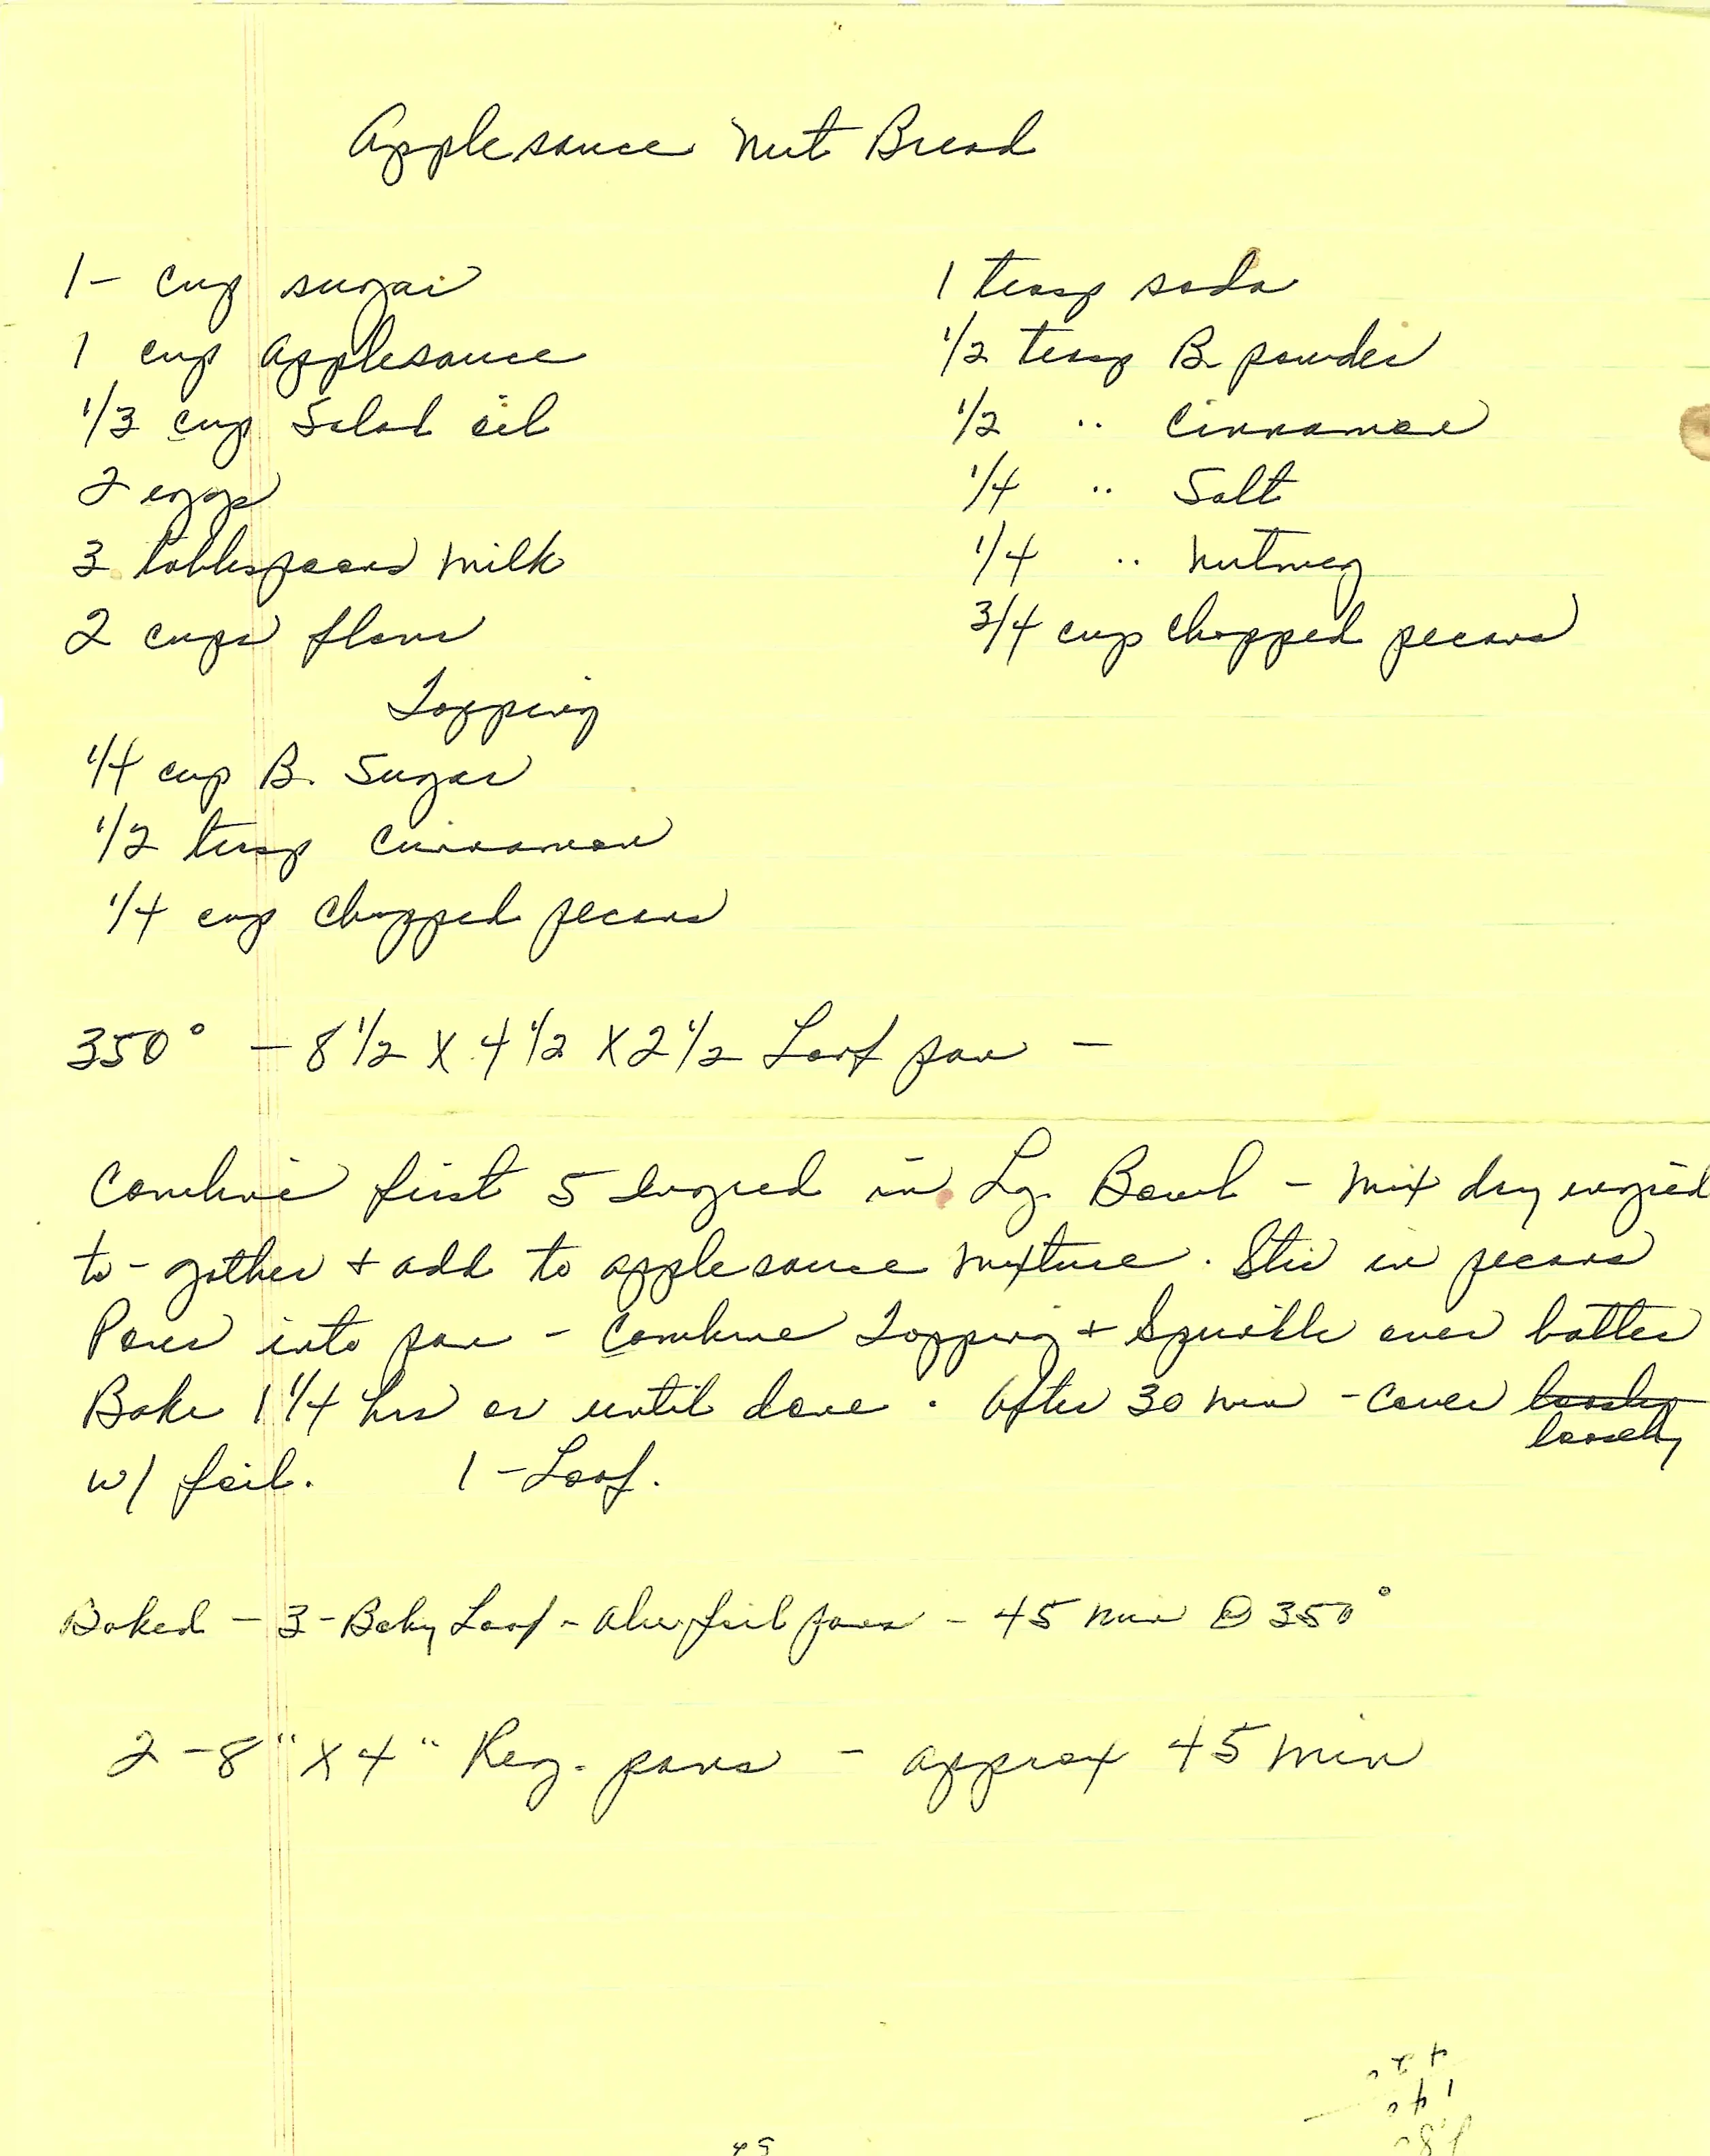 Applesauce Nut Bread
1 - cup sugar
1 cup applesauce
1/3 cup Salad oil
2 eggs
3 tablespoons milk
2 cups flour
1 teasp soda
1/2 teasp B. powder
1/2 " Cinnamon
1/4 " Salt
1/4 " Nutmeg
3/4 cup chopped pecans
Topping
1/4 cup B. Sugar
1/2 teasp Cinnamon
1/4 cup chopped pecans
350° - 8 1/2 X 4 1/2 X 2 1/2 Loaf pan -
Combine first 5 Ingred in Lg. Bowl - Mix dry ingred
to-gether + add to applesauce mixture. Stir in pecans
Pour into pan - Combine Topping + Sprinkle over batter
Bake 1 1/4 hrs or until done. After 30 min - cover
loosely
w/ foil. 1 - Loaf.
Baked - 3 - Baby Loaf - alu. foil pans - 45 min @ 350°
2 - 8" X 4" Reg. pans - approx 45 min